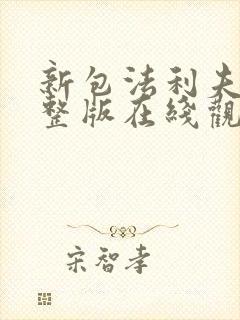 新包法利夫
整版在綫觀
宋智孝